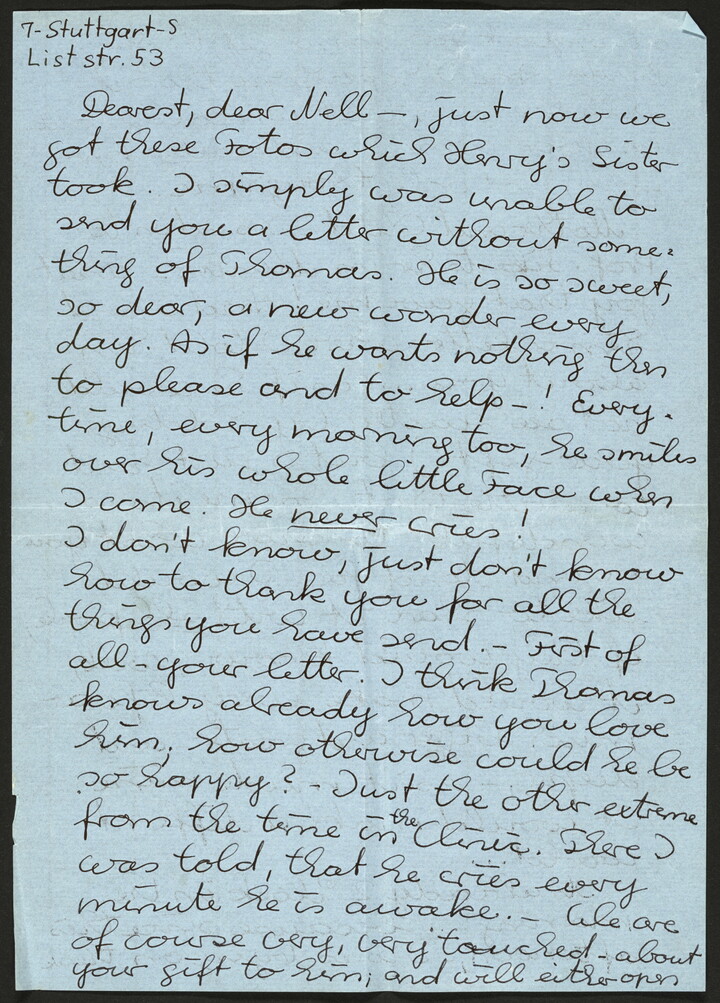 7-Stuttgart-S
Liststr. 53
Dearest, dear Nell —, just now we
got these Fotos which Henry's Sister
took. I simply was unable to
send you a letter without some=
thing of Thomas. He is so sweet,
so dear, a new wonder every
day. As if he wants nothing then
to please and to help –! Every-
time, every morning too, he smiles
over his whole little Face when
I come. He never cries!
I don't know, just don't know
how to thank you for all the
things you have send. – First of
all – your letter. I think Thomas
knows already how you love
him; how otherwise could he be
so happy? – Just the other extreme
from the time in the Clinic. There I
was told, that he cries every
minute he is awake. – We are
of course very, very touched – about
your gift to him; and will either open